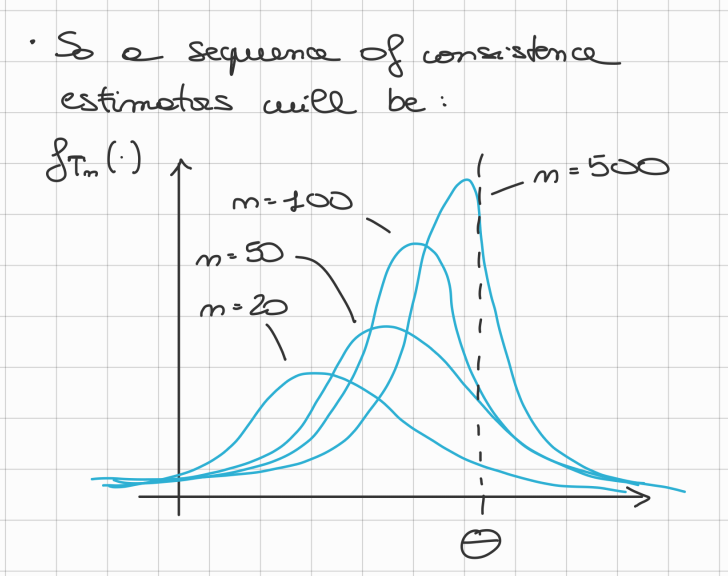 · So a sequence of consistence
estimators will be:
f_Tn(·)
n=500
n=100
n=50
n=20
θ